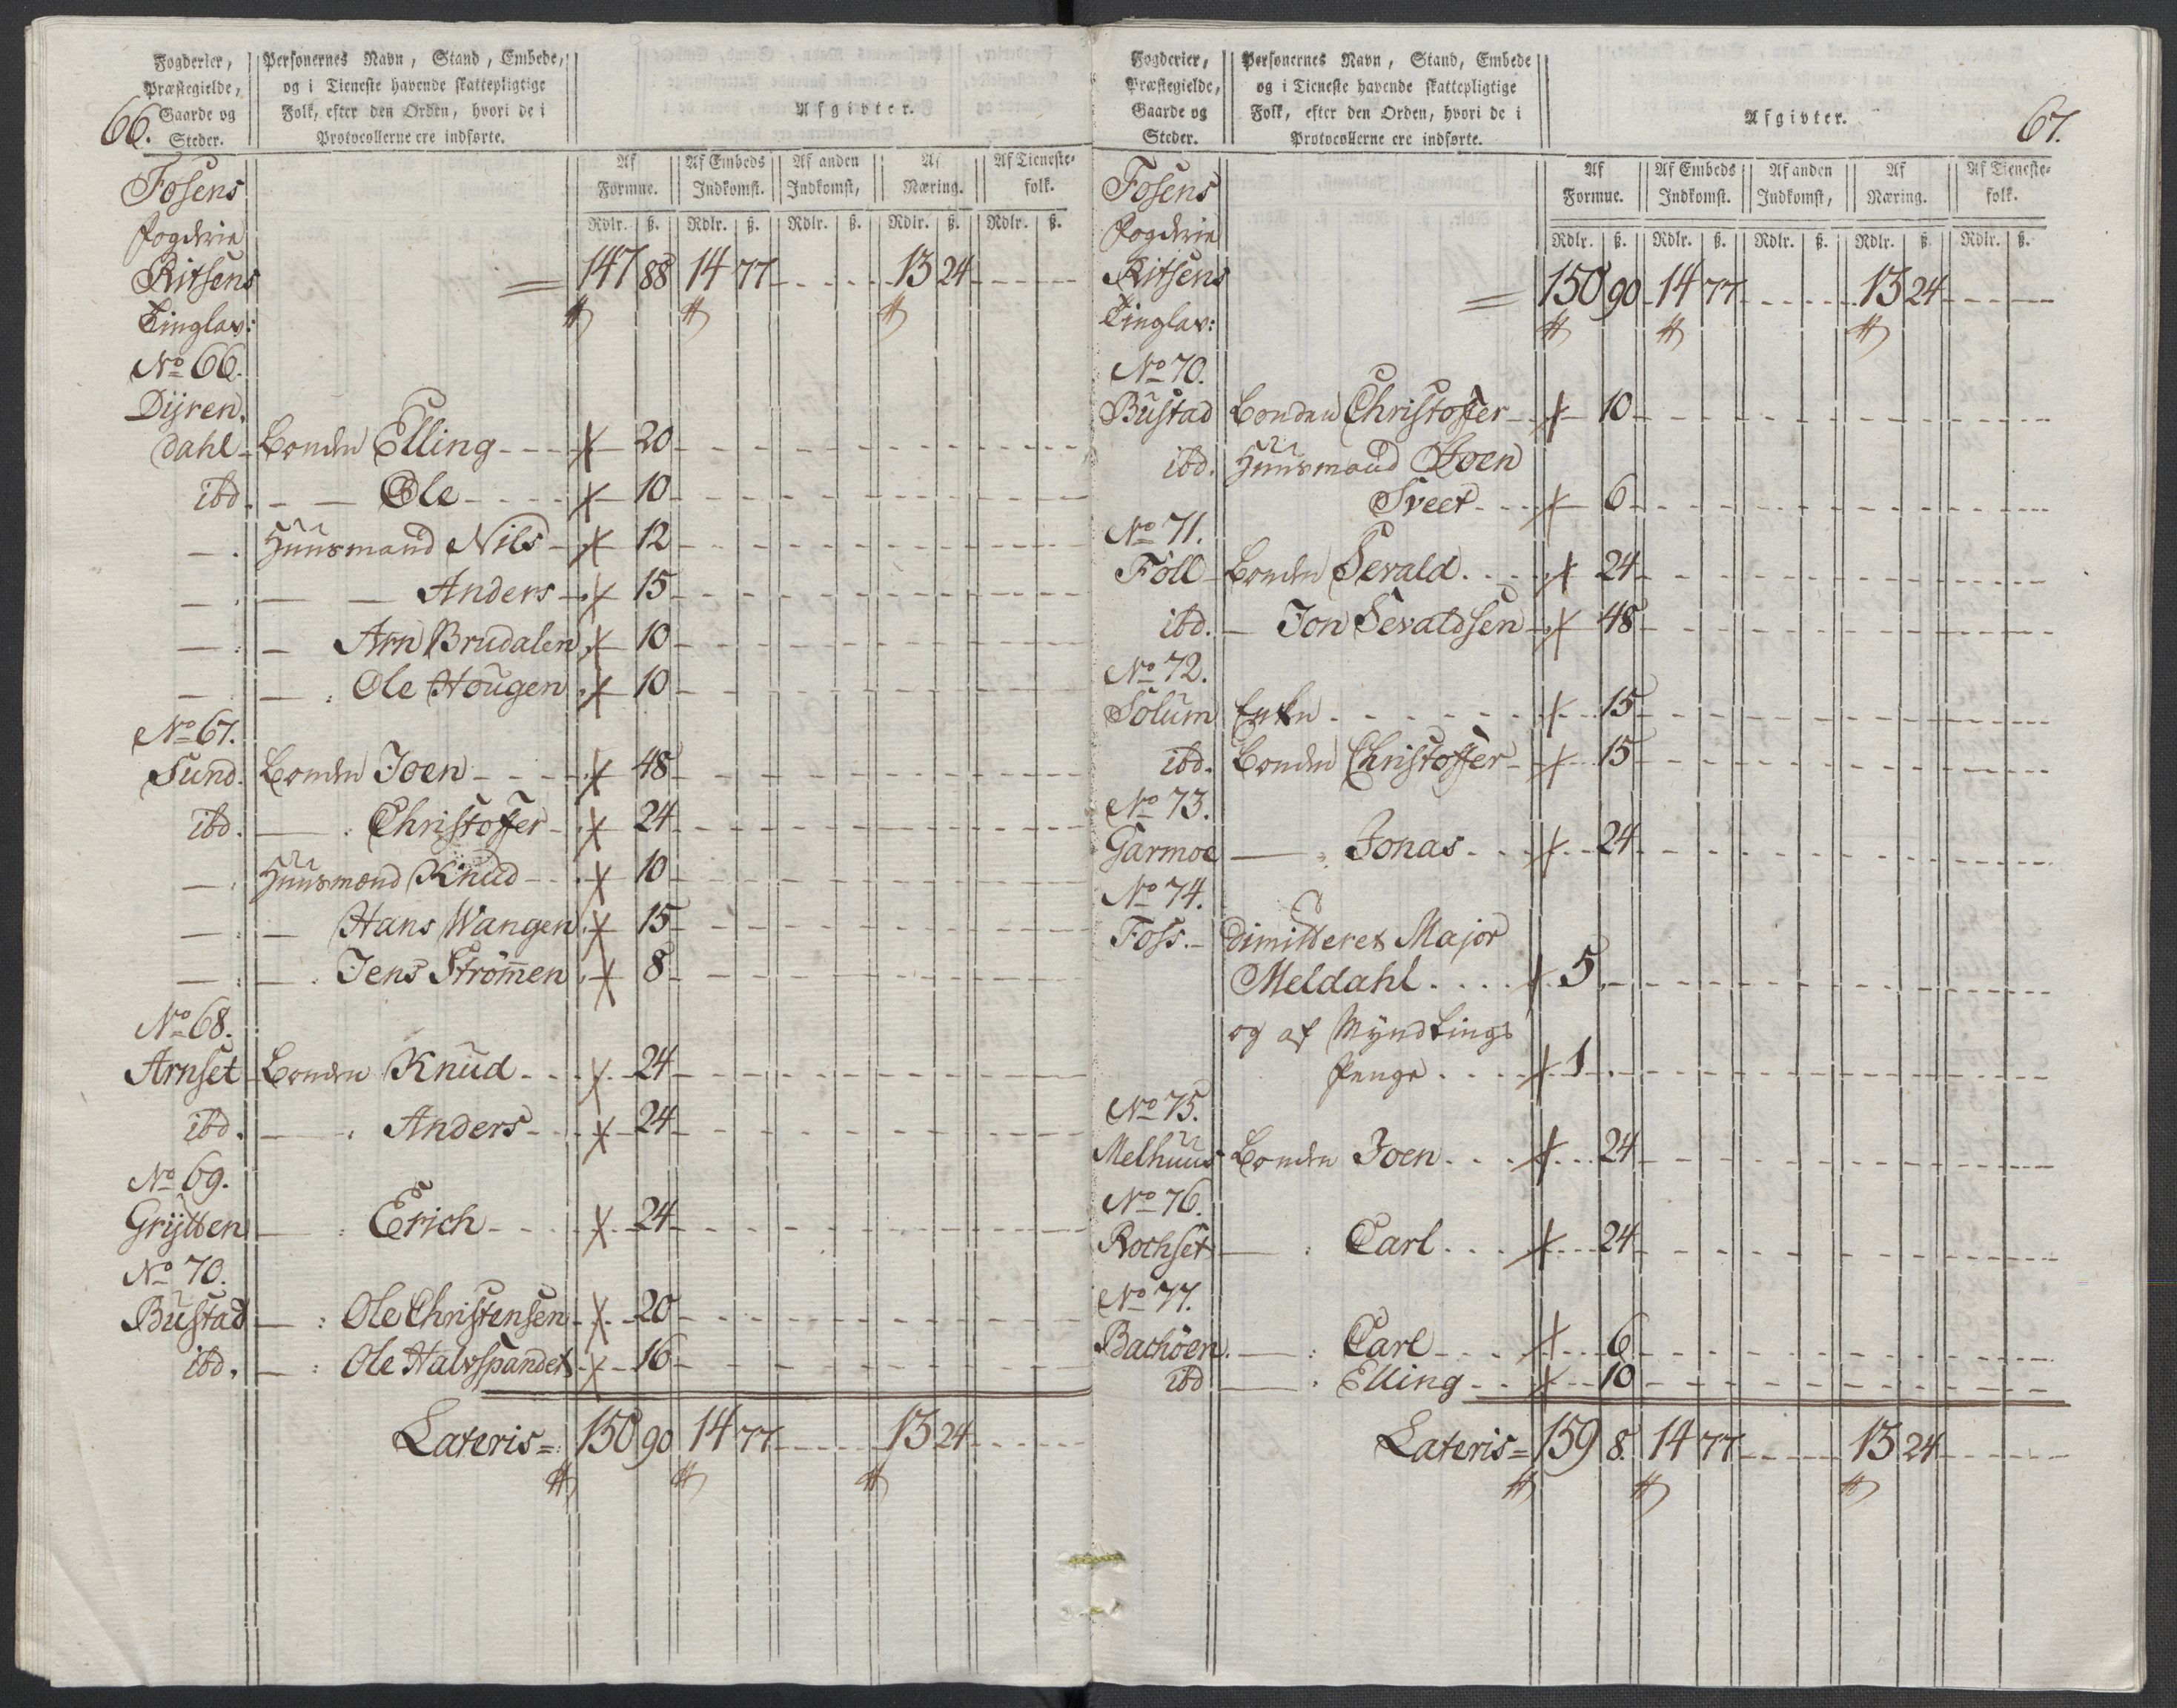 66.
Fogderier, Præstegielde, Gaarde og Steder.
Personernes Navn, Stand, Embede, og i Tieneste havende skattepligtige Folk, efter den Orden, hvori de i Protocollerne ere indførte.
Afgivter.
Af Formue. Af Embeds Indkomst. Af anden Indkomst, Af Næring. Af Tieneste-folk.
Rdlr. ß. Rdlr. ß. Rdlr. ß. Rdlr. ß. Rdlr. ß.
Fosens
Fogderie
Ritsens = 147 88 14 77 13 24
Tinglav:
No 66.
Dyren,
dahl Bonden Elling 20
ibd. — Ole 10
— Huusmand Nils 12
— — Anders 15
— — Arn Brudalen 10
— — Ole Hougen 10
No 67.
Sund. Bonden Joen 48
ibd. — Christoffer 24
— Huusmand Knud 10
— — Hans Wangen 15
— — Jens Strömen 8
No 68.
Arnset Bonden Knud 24
ibd. — Anders 24
No 69.
Grÿtten — Erich 24
No 70.
Bustad — Ole Christensen 20
ibd. — Ole Halvspandet 16
Lateris = 150 90 14 77 13 24
67.
Fogderier, Præstegielde, Gaarde og Steder.
Personernes Navn, Stand, Embede og i Tieneste havende skattepligtige Folk, efter den Orden, hvori de i Protocollerne ere indførte.
Afgivter.
Af Formue. Af Embeds Indkomst. Af anden Indkomst, Af Næring. Af Tieneste-folk.
Rdlr. ß. Rdlr. ß. Rdlr. ß. Rdlr. ß. Rdlr. ß.
Fosens
Fogderie
Ritsens = 150 90 14 77 13 24
Tinglav:
No 70.
Bustad Bonden Christoffer 10
ibd. Huusmand Joen
Sveet 6
No 71.
Föll Bonden Sevald 24
ibd. — Jon Sevaldsen 48
No 72.
Solum Enken 15
ibd. Bonden Christoffer 15
No 73.
Garmoe — Jonas 24
No 74.
Foss. dimitteret Major
Meldahl 5
og af Myndlings
Penge 1
No 75.
Melhuus Bonden Joen 24
No 76.
Rochset — Carl 24
No 77.
Bachöen — Carl 6
ibd — Elling 10
Lateris = 159 8 14 77 13 24